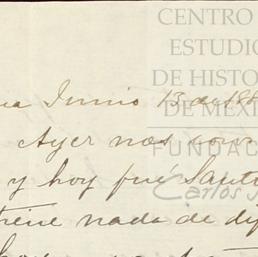 CENTRO
ESTUDIO
DE HISTO
DE MÉXI
FUNDAC
Carlos
Junio 13 de 188
Ayer nos
y hoy fué Santi
tiene nada de dif